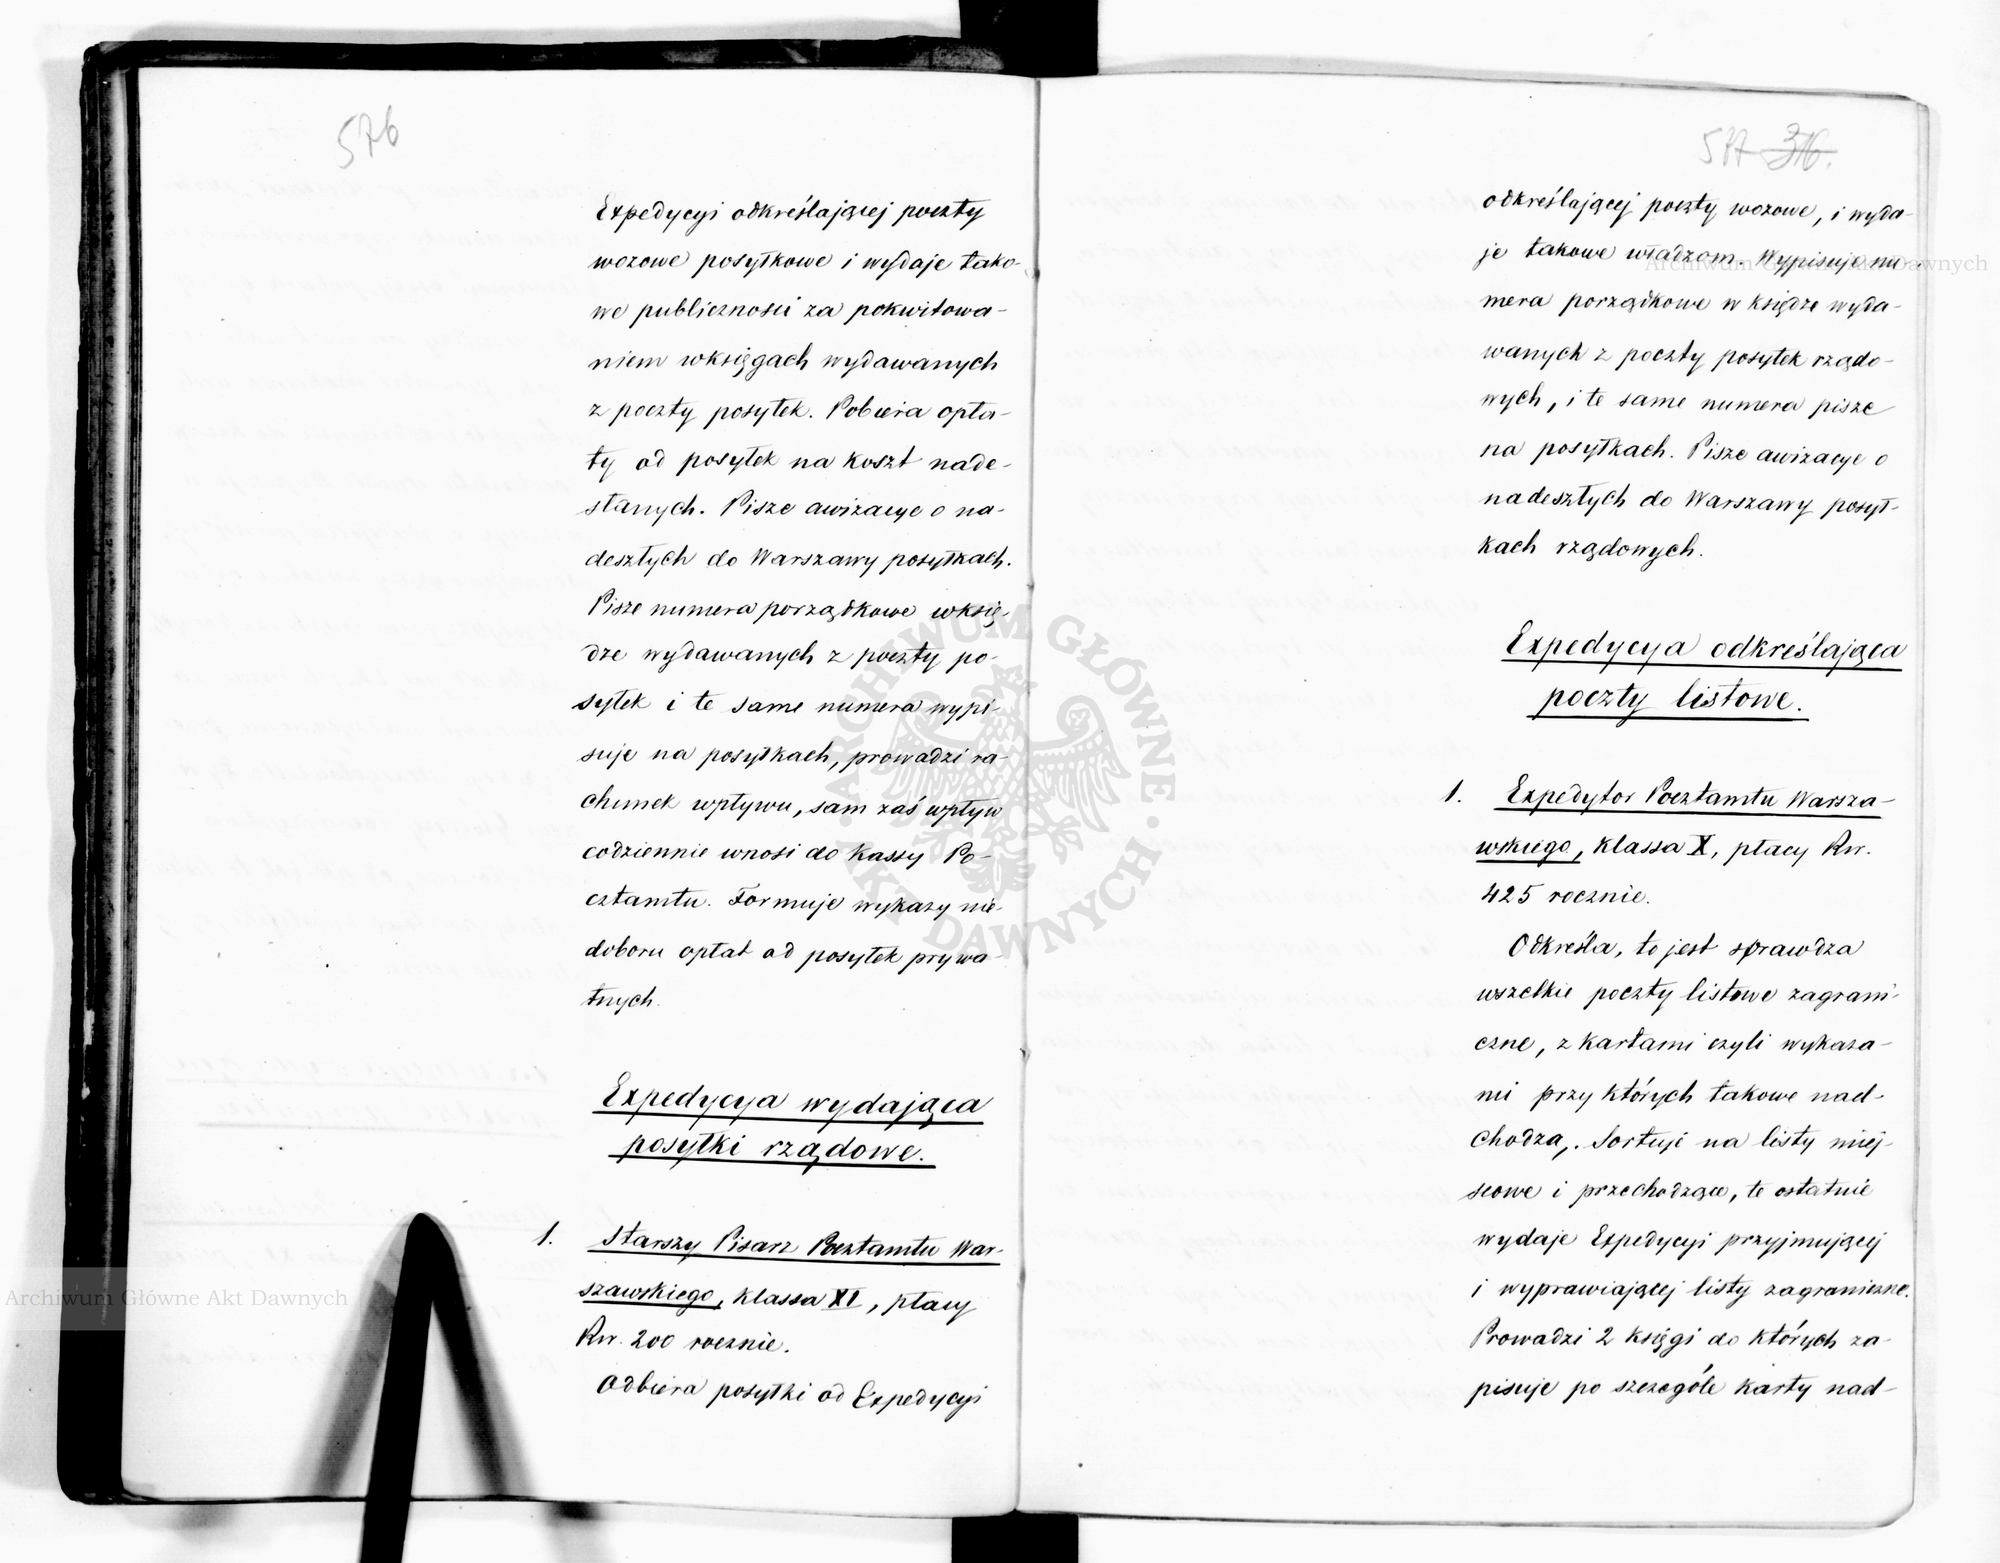 576
Expedycyi odkreślającej poczty
wozowe posyłkowe i wydaje tako-
we publiczności za pokwitowa-
niem wksięgach wydawanych
z poczty posyłek. Pobiera opła-
ty od posyłek na koszt nade-
słanych. Pisze awizacye o na-
deszłych do Warszawy posyłkach.
Pisze numera porządkowe wksię-
dze wydawanych z poczty po-
syłek i te same numera wypi-
suje na posyłkach, prowadzi ra-
chunek wpływu, sam zaś wpływ
codziennie wnosi do Kassy Po-
cztamtu. Formuje wykazy nie-
doboru opłat od posyłek prywa-
tnych.
Expedycya wydająca
posyłki rządowe.
1. Starszy Pisarz Pocztamtu War-
szawskiego, klassa XI, płacy
Rsr. 200 rocznie.
Odbiera posyłki od Expedycyi
577 316.
odkreślającej poczty wozowe, i wyda-
je takowe władzom. Wypisuje nu-
mera porządkowe w księdze wyda-
wanych z poczty posyłek rządo-
wych, i te same numera pisze
na posyłkach. Pisze awizacye o
nadeszłych do Warszawy posył-
kach rządowych.
Expedycya odkreślająca
poczty listowe.
1. Expedytor Pocztamtu Warsza-
wskiego, klassa X, płacy Rsr.
425 rocznie.
Odkreśla, to jest sprawdza
wszelkie poczty listowe zagrani-
czne, z kartami czyli wykaza-
mi przy których takowe nad-
chodzą. Sortuje na listy miej-
scowe i przechodzące, te ostatnie
wydaje Expedycyi przyjmującej
i wyprawiającej listy zagraniczne.
Prowadzi 2 księgi do których za-
pisuje po szczególe karty nad-
Archiwum Główne Akt Dawnych
Archiwum Główne Akt Dawnych
ARCHIWUM GŁÓWNE · AKT DAWNYCH ·